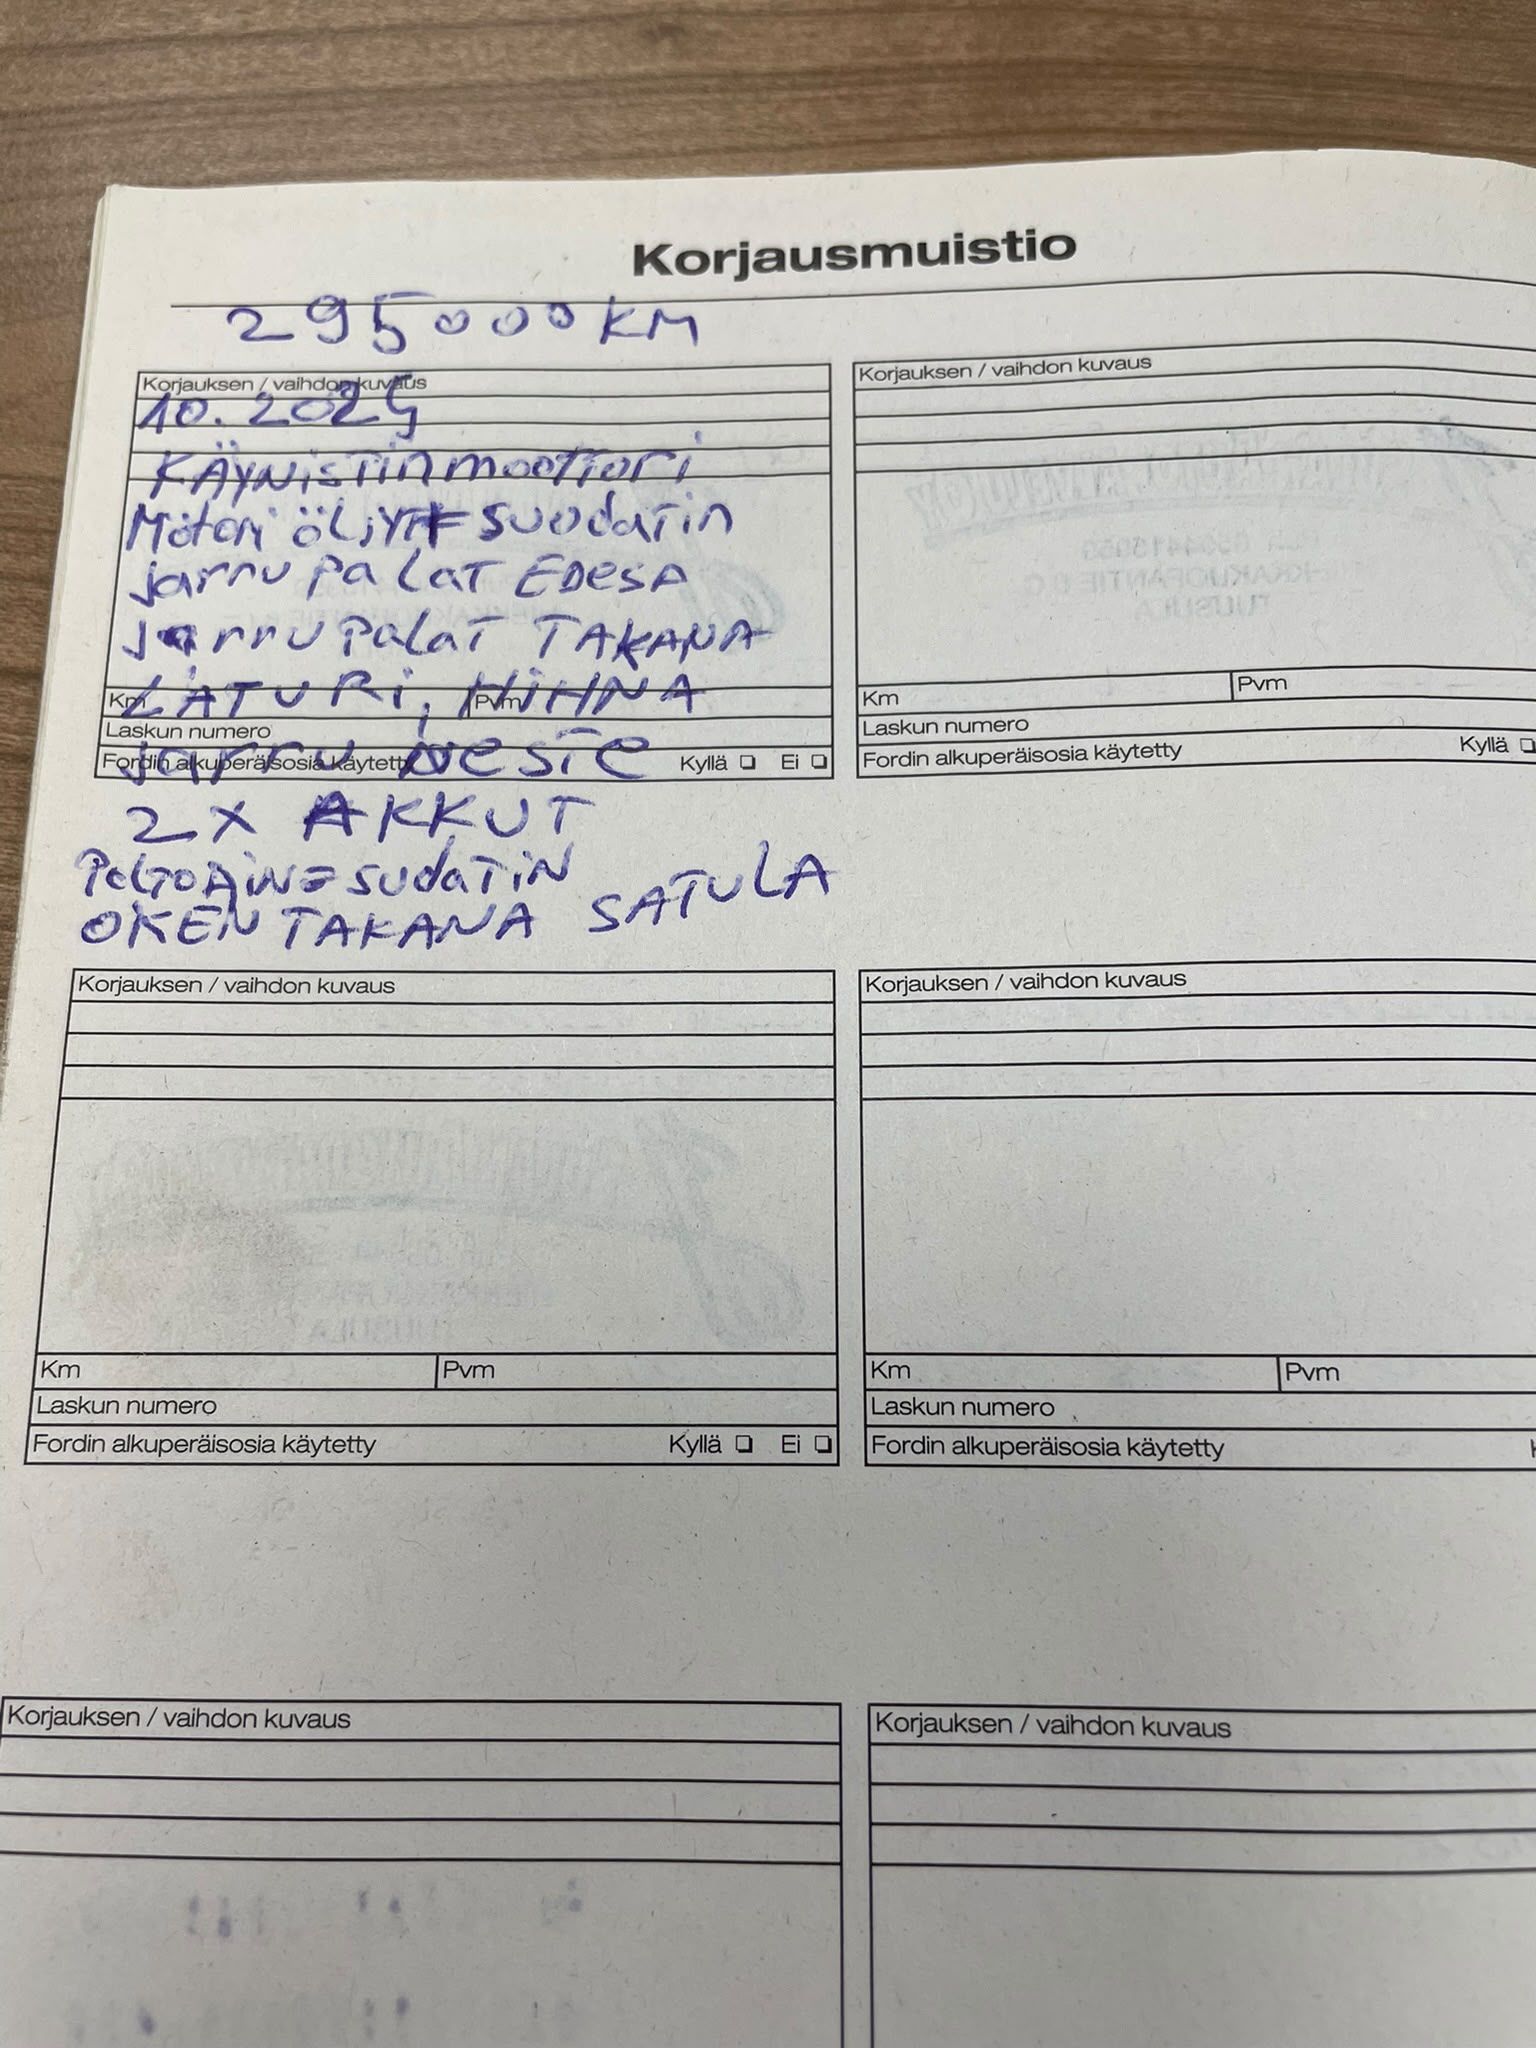 Korjausmuistio
295000 KM
Korjauksen / vaihdon kuvaus
10.2025
KÄYNiSTinmoottori
Motori ÖLiYT+ suodatin
jarru palat EDESA
jarru palat TAKANA
LATURi, HiHNA
Km
Pvm
Laskun numero
jarru neste
Fordin alkuperäisosia käytetty Kyllä Ei
2X AKKUT
sudatin
OKEN TAKANA SATULA
Korjauksen / vaihdon kuvaus
Km Pvm
Laskun numero
Fordin alkuperäisosia käytetty Kyllä
Korjauksen / vaihdon kuvaus
Km Pvm
Laskun numero
Fordin alkuperäisosia käytetty Kyllä Ei
Korjauksen / vaihdon kuvaus
Km Pvm
Laskun numero
Fordin alkuperäisosia käytetty
Korjauksen / vaihdon kuvaus
Korjauksen / vaihdon kuvaus